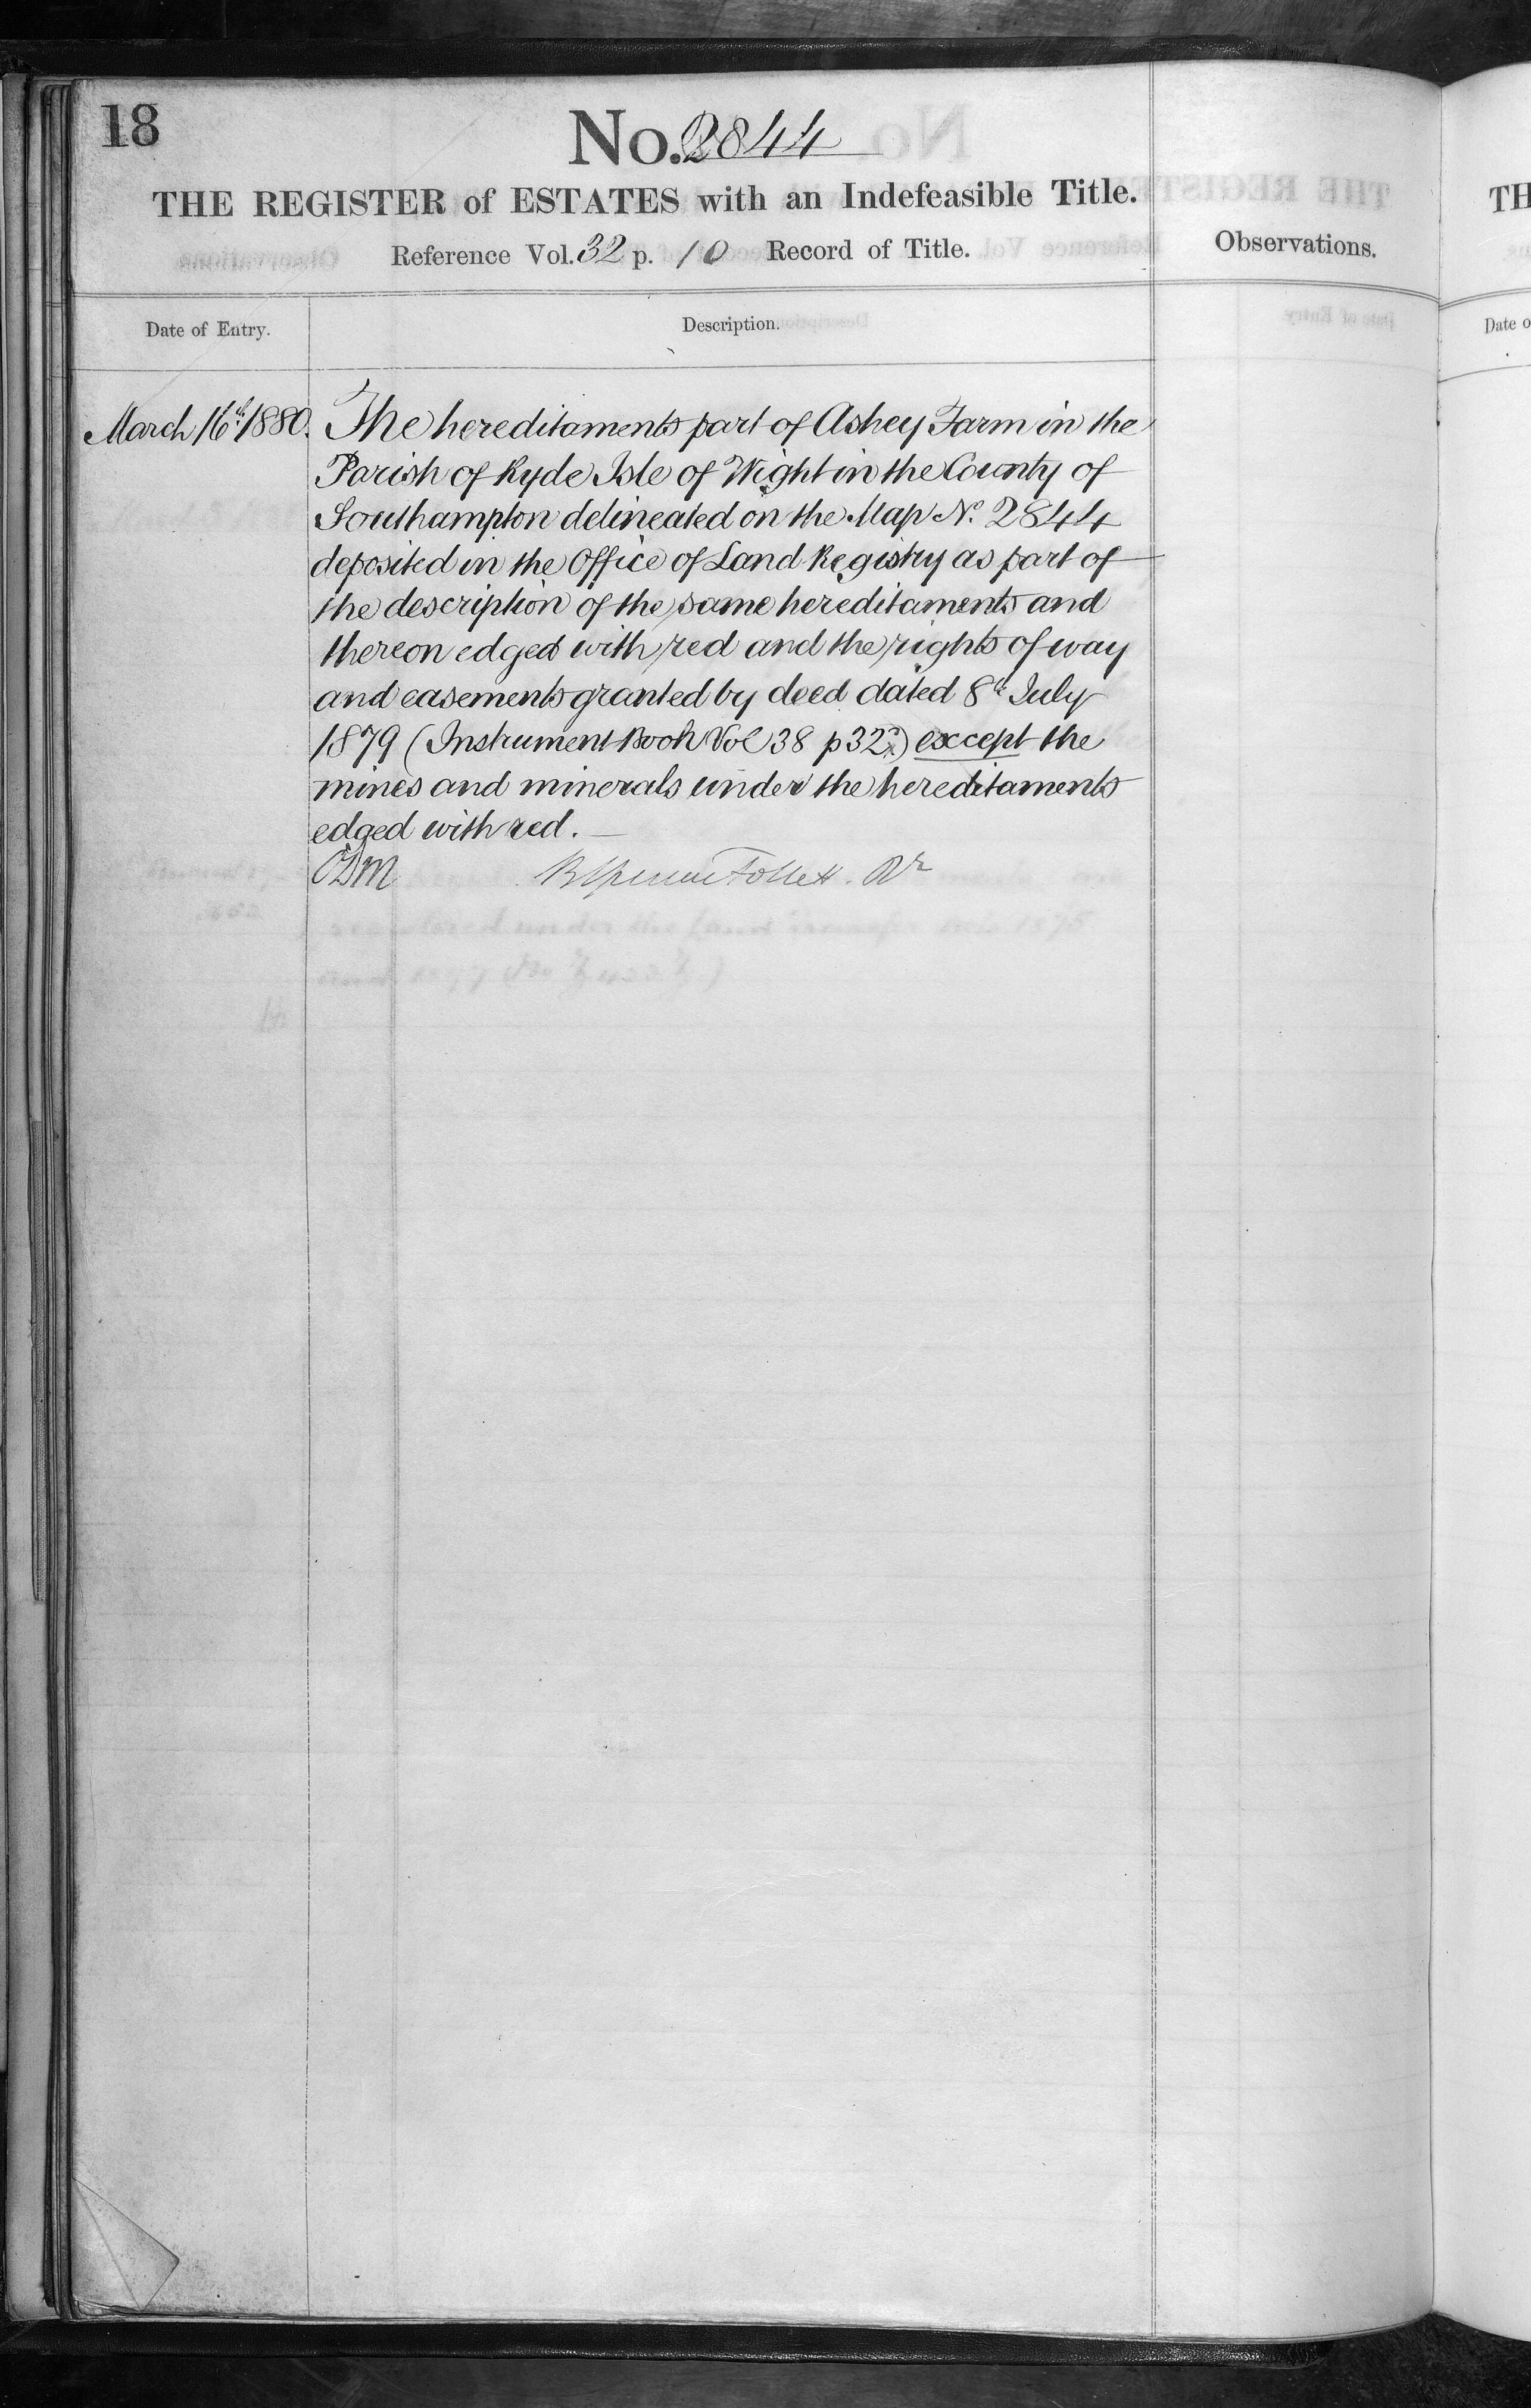 18
No. 2844
THE REGISTER of ESTATES with an Indefeasible Title.
Reference Vol. 32 p. 10 Record of Title.
Observations.
Date of Entry.
Description.
March 16th 1880.
The hereditaments part of Ashey Farm in the
Parish of Ryde Isle of Wight in the County of
Southampton delineated on the Map No. 2844
deposited in the Office of Land Registry as part of
the description of the same hereditaments and
thereon edged with red and the rights of way
and easements granted by deed dated 8th July
1879 (Instrument Book Vol 38 p 32) except the
mines and minerals under the hereditaments
edged with red.
Follett. Rr
registered under the Land Transfer Acts 1875
and 1897
TH
Date o